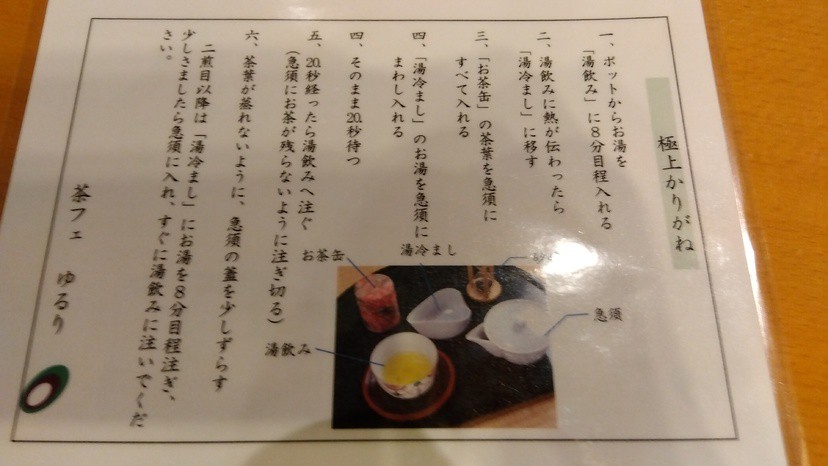 極上かりがね
一、ポットからお湯を
「湯飲み」に8分目程入れる
二、湯飲みに熱が伝わったら
「湯冷まし」に移す
三、「お茶缶」の茶葉を急須に
すべて入れる
四、「湯冷まし」のお湯を急須に
まわし入れる
四、そのまま20秒待つ
五、20秒経ったら湯飲みへ注ぐ
(急須にお茶が残らないように注ぎ切る)
六、茶葉が蒸れないように、急須の蓋を少しずらす
二煎目以降は「湯冷まし」にお湯を8分目程注ぎ、
少しさましたら急須に入れ、すぐに湯飲みに注いでくだ
さい。
茶フェ ゆるり
お茶缶
湯冷まし
急須
湯飲み